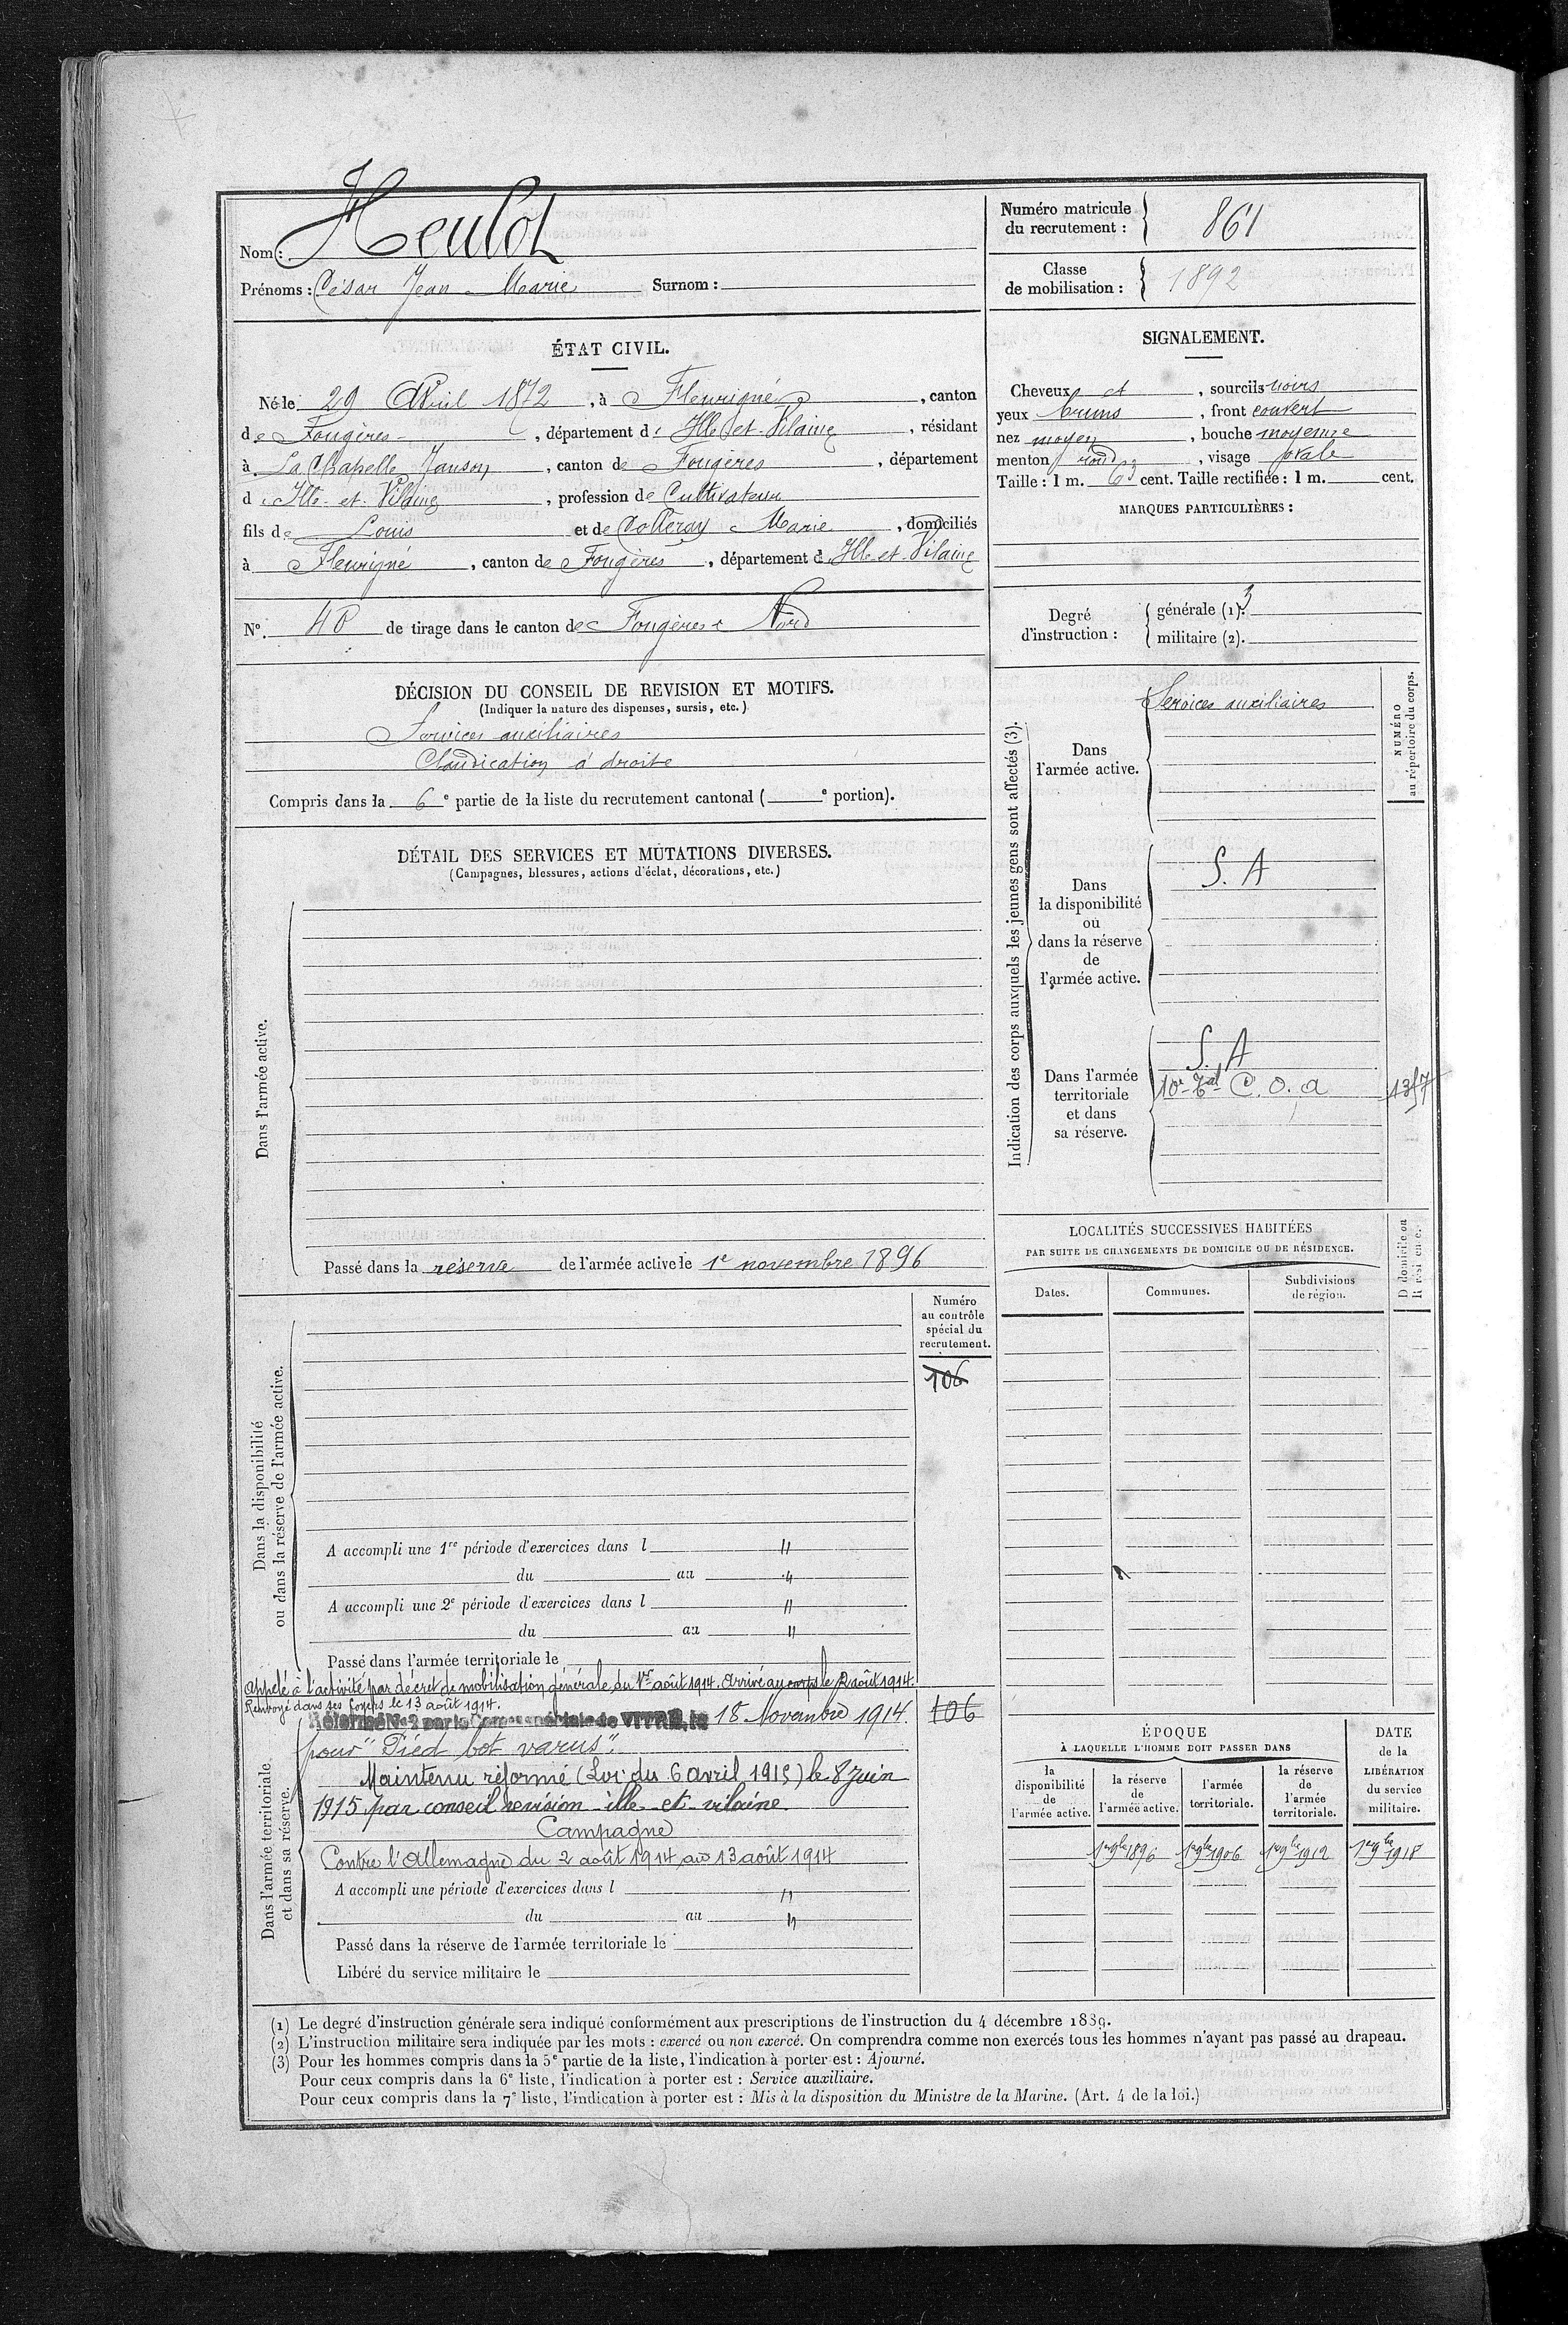 Nom : Heulot
Prénoms : César Jean Marie Surnom :
Numéro matricule du recrutement : 861
Classe de mobilisation : 1892
ÉTAT CIVIL.
Né le 29 Avril 1872, à Fleurigné, canton
de Fougères, département d'Ille et Vilaine, résidant
à La Chapelle Janson, canton de Fougères, département
d'Ille et Vilaine, profession de Cultivateur
fils de Louis et de Marie, domiciliés
à Fleurigné, canton de Fougères, département d'Ille et Vilaine
N°. de tirage dans le canton de Fougères Nord
SIGNALEMENT.
Cheveux et, sourcils noirs
yeux bruns, front couvert
nez moyen, bouche moyenne
menton rond, visage ovale
Taille : 1 m. 63 cent. Taille rectifiée : 1 m. cent.
MARQUES PARTICULIÈRES :
Degré d'instruction : générale (1). 3
militaire (2).
DÉCISION DU CONSEIL DE REVISION ET MOTIFS.
(Indiquer la nature des dispenses, sursis, etc.)
Services auxiliaires
Claudication à droite
Compris dans la 6e partie de la liste du recrutement cantonal ( e portion).
DÉTAIL DES SERVICES ET MUTATIONS DIVERSES.
(Campagnes, blessures, actions d'éclat, décorations, etc.)
Dans l'armée active.
Passé dans la réserve de l'armée active le 1e novembre 1896
Indication des corps auxquels les jeunes gens sont affectés (3).
NUMÉRO au répertoire du corps.
Dans l'armée active.
Services auxiliaires
Dans la disponibilité ou dans la réserve de l'armée active.
S. A
Dans l'armée territoriale et dans sa réserve.
S. A
10e C. O. A
LOCALITÉS SUCCESSIVES HABITÉES
PAR SUITE DE CHANGEMENTS DE DOMICILE OU DE RÉSIDENCE.
Dates. Communes. Subdivisions de région.
Dans la disponibilité ou dans la réserve de l'armée active.
Numéro au contrôle spécial du recrutement.
106
A accompli une 1re période d'exercices dans l "
du au "
A accompli une 2e période d'exercices dans l "
du au "
Passé dans l'armée territoriale le
Appelé à l'activité par décret de mobilisation générale du 1er août 1914. Arrivé au corps le 2 août 1914.
Renvoyé dans ses foyers le 13 août 1914.
Réformé No 2 par la Comm spéciale de VITRÉ, le 18 Novembre 1914. 106
pour "Pied bot varus".
Maintenu réformé (Loi du 6 avril 1915) le 8 Juin
1915 par conseil revision ille-et-vilaine.
Campagne
Contre l'Allemagne du 2 août 1914 au 13 août 1914
Dans l'armée territoriale et dans sa réserve.
A accompli une période d'exercices dans l "
du au "
Passé dans la réserve de l'armée territoriale le
Libéré du service militaire le
ÉPOQUE
À LAQUELLE L'HOMME DOIT PASSER DANS
la disponibilité de l'armée active.
la réserve de l'armée active.
l'armée territoriale.
la réserve de l'armée territoriale.
DATE de la LIBÉRATION du service militaire.
1er 9bre 1896 1er 9bre 1906 1er 9bre 1912 1er 9bre 1918
(1) Le degré d'instruction générale sera indiqué conformément aux prescriptions de l'instruction du 4 décembre 1889.
(2) L'instruction militaire sera indiquée par les mots : exercé ou non exercé. On comprendra comme non exercés tous les hommes n'ayant pas passé au drapeau.
(3) Pour les hommes compris dans la 5e partie de la liste, l'indication à porter est : Ajourné.
Pour ceux compris dans la 6e liste, l'indication à porter est : Service auxiliaire.
Pour ceux compris dans la 7e liste, l'indication à porter est : Mis à la disposition du Ministre de la Marine. (Art. 4 de la loi.)